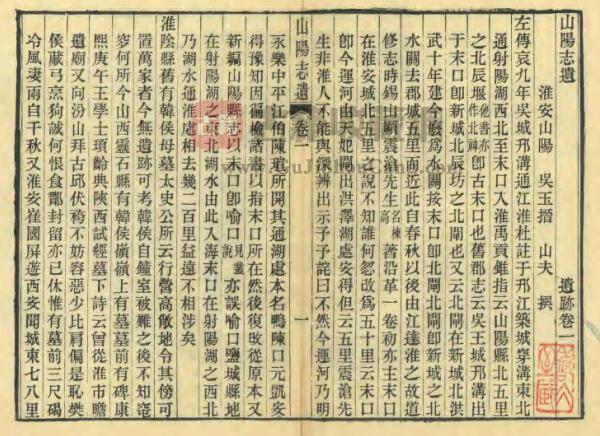 山陽志遺
遺跡卷一
淮安山陽　吳玉搢　山夫　撰
左傳哀九年吳城邗溝通江淮杜註于邗江築城穿溝東北
通射陽湖西北至末口入淮禹貢錐指云山陽縣北五里
之北辰堰他書亦作北神卽古末口也舊郡志云吳王城邗溝出
于末口卽新城北辰坊之北閘也又云北閘在新城北洪
武十年建今廢爲水關按末口卽北閘北閘卽新城之北
水關去郡城五里而近此自春秋以後由江達淮之故道
修志時錫山顧震滄先生名棟高著沿革一卷初亦主末口
在淮安城北五里之說不知誰何忽改爲五十里云末口
卽今運河由天妃閘出洪澤湖處安得但云五里震滄先
生非淮人不能與深辨出示予予詫曰不然今運河乃明
山陽志遺
卷一
一
永樂中平江伯陳瑄所開其通湖處本名鴨陳口元凱安
得豫知因徧檢諸書以指末口所在然後復改從原本又
新編山陽縣志以末口卽喻口見叢說亦誤喻口鹽城縣地
在射陽湖之東北湖水由此入海末口在射陽湖之西北
乃湖水運淮處相去幾二百里益遠不相涉矣
淮陰縣舊有韓侯母墓太史公所云行營高敞地令其傍可
置萬家者今無遺跡可考韓侯自鐘室被難之後不知窀
穸何所今山西靈石縣有韓侯嶺嶺上有墓墓前有碑康
熙庚午王學士頊齡典陝西試經墓下詩云曾從淮市瞻
遺廟又向汾山拜古邱伏袴不妨容惡少比肩偏是恥樊
侯藏弓烹狗誠何恨食酈封留亦已休惟有墓前三尺碣
冷風凄雨自千秋又淮安崔國屏遊西安聞城東七八里